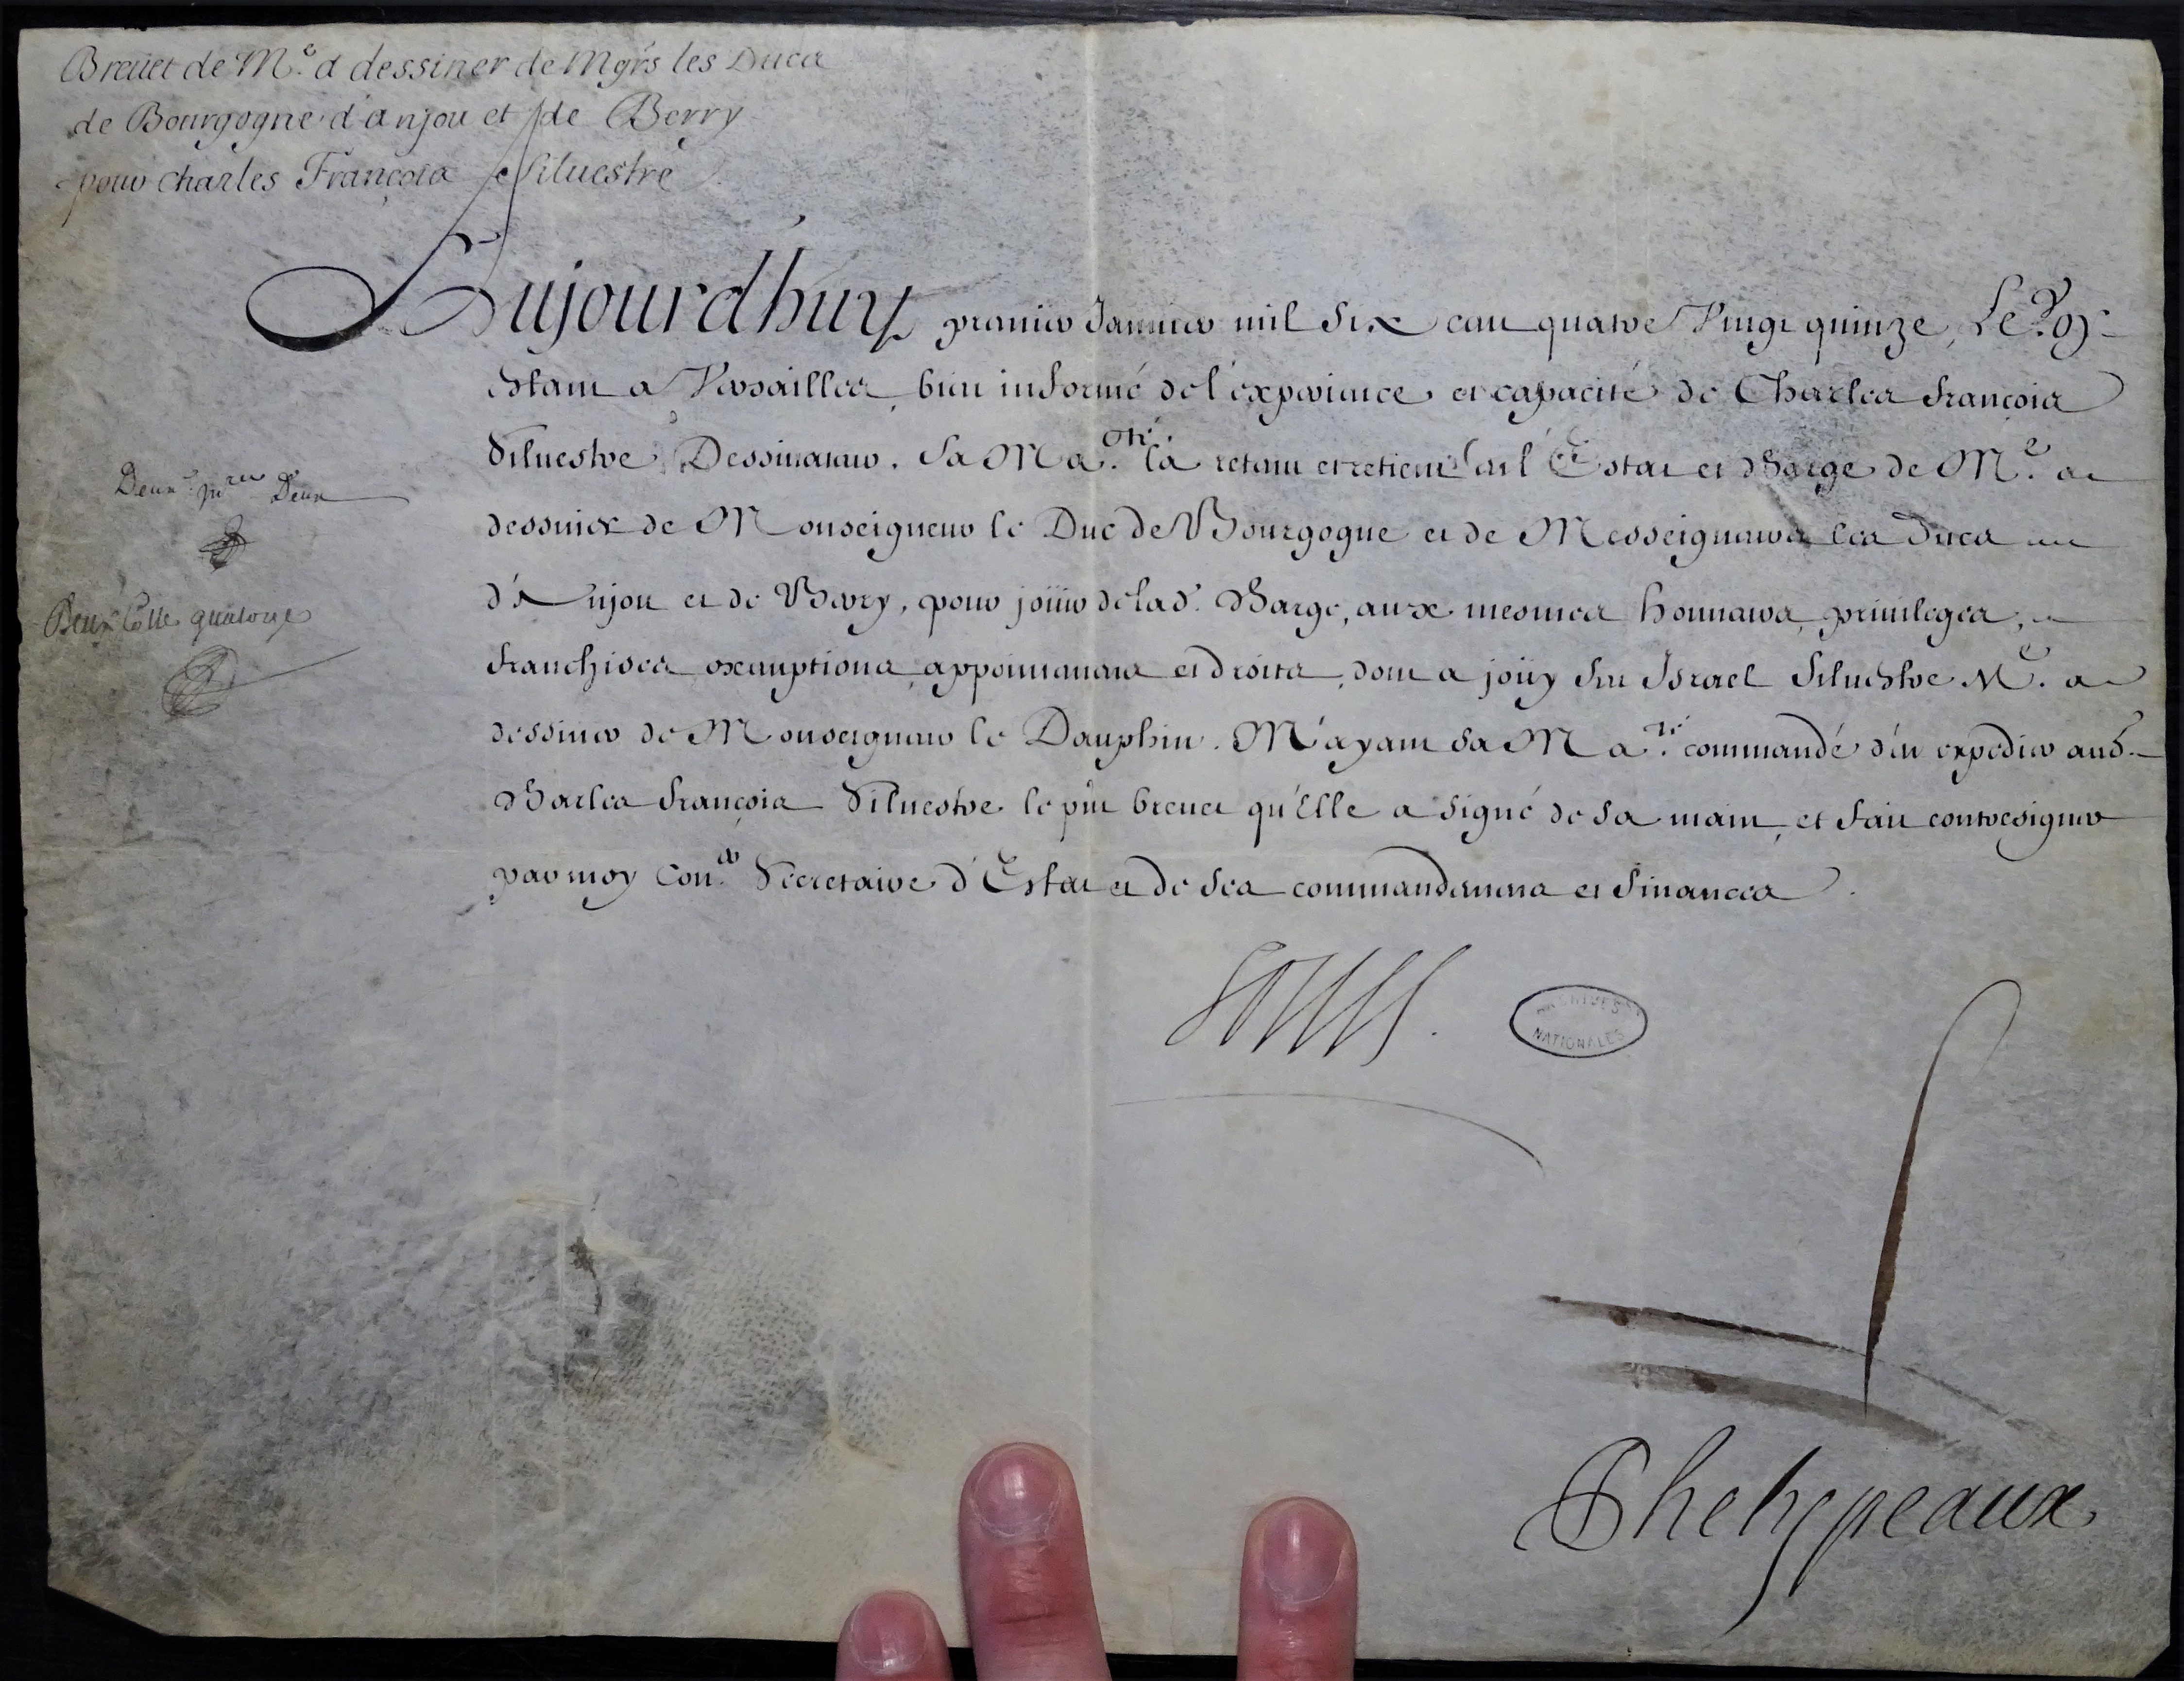 Breuet de M.e a dessiner de Mgrs les Ducs
de Bourgogne d'anjou et de Berry
pour Charles François Siluestre
Aujourd'huy premier Januier mil six cens quatre Vingt quinze, Le Roy
estant a Versailles, bien informé de l'experience et capacité de Charles françois
Siluestre Dessinateur, Sa Ma.té l'a retenu et retient en l'Estat et charge de M.e a
dessiner de Monseigneur le Duc de Bourgogne et de Messeigneurs les Ducs
d'Anjou et de Berry, pour joüir de lad. charge, aux mesmes honneurs, priuileges,
franchises, exemptions, appointemens et droits, dont a joüy feu Israel Siluestre M.e a
dessiner de Monseigneur le Dauphin. M'ayant Sa Ma.té commandé d'en expedier aud.
Charles françois Siluestre le pñt breuet qu'Elle a signé de sa main, et fait contresigner
par moy Con.er Secretaire d'Estat et de ses commandemens et finances.
Deux.e
Deux
Deux Cotte quatorze
Louis.
ARCHIVES
NATIONALES
Phelypeaux